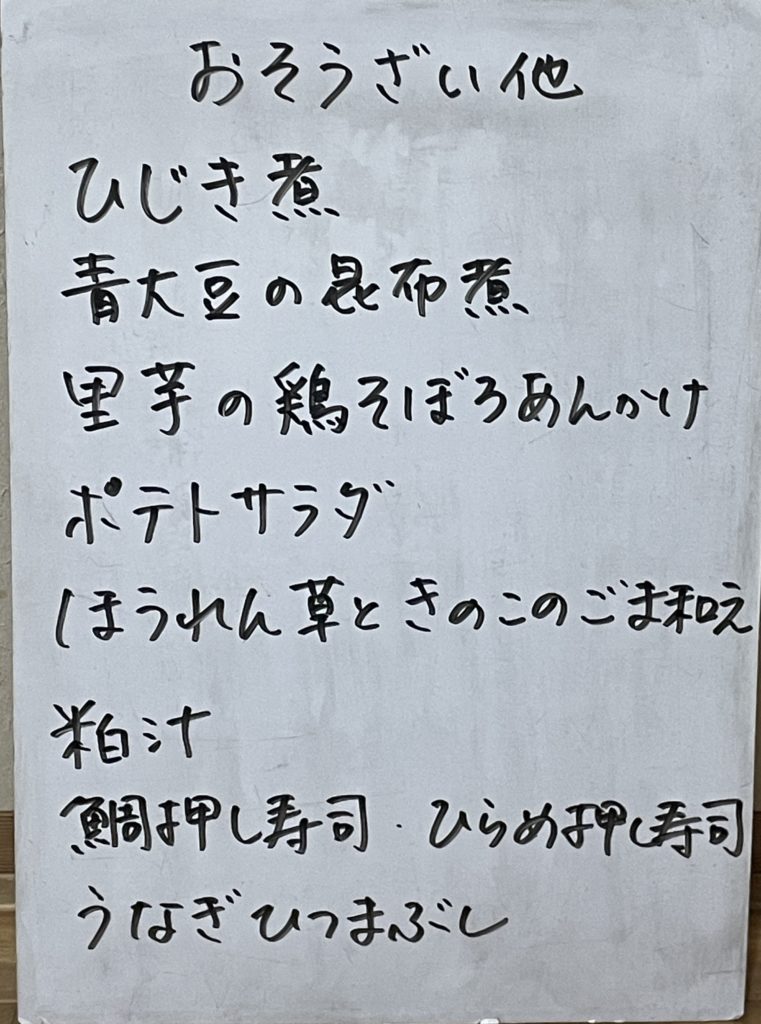 おそうざい他
ひじき煮
青大豆の昆布煮
里芋の鶏そぼろあんかけ
ポテトサラダ
ほうれん草ときのこのごま和え
粕汁
鯛押し寿司・ひらめ押し寿司
うなぎひつまぶし